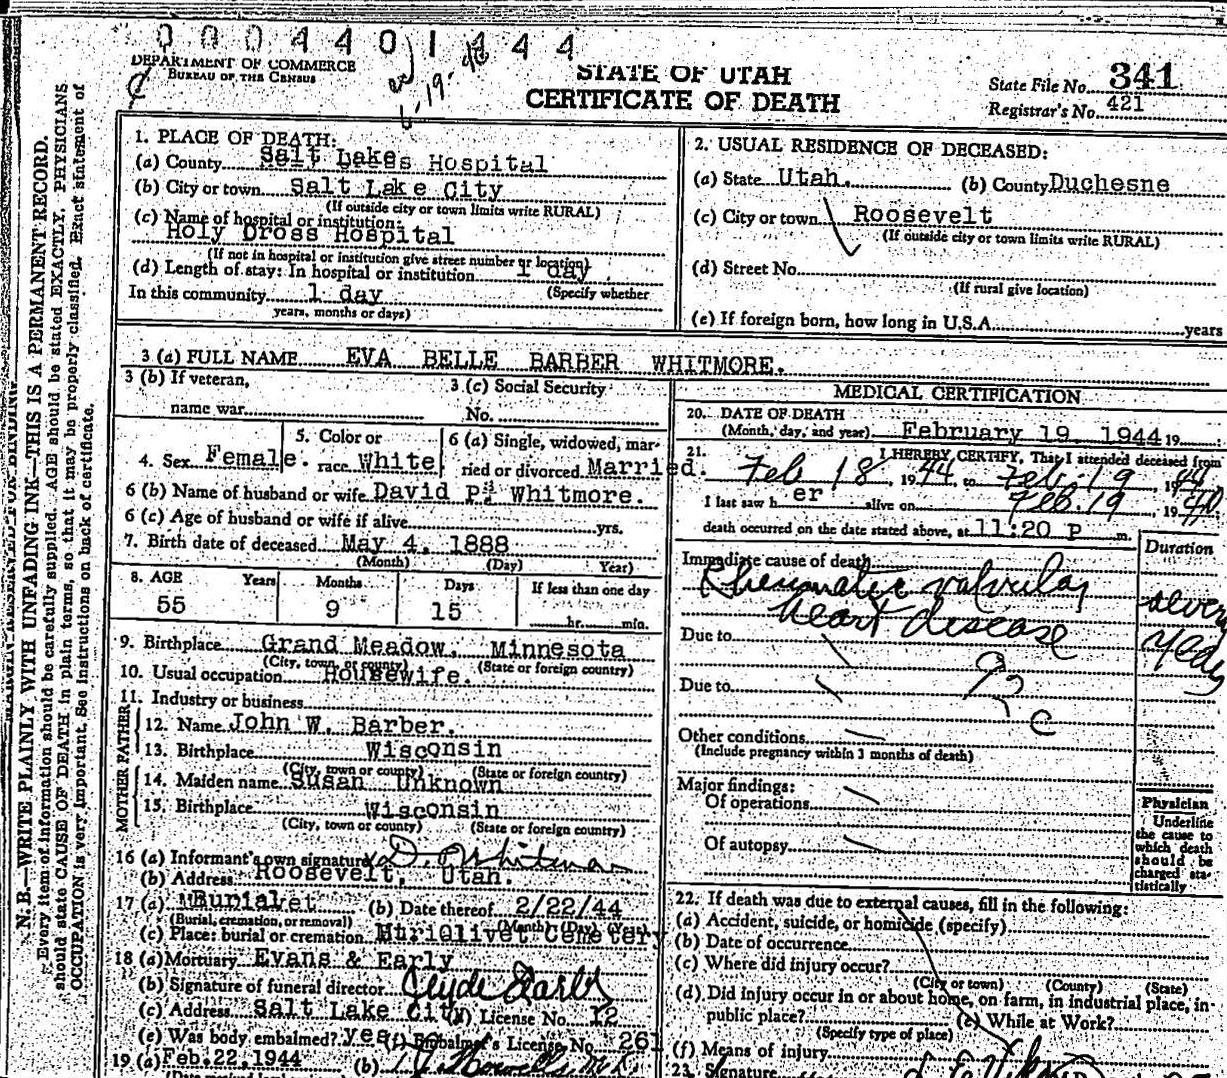 0004401444
DEPARTMENT OF COMMERCE
BUREAU OF THE CENSUS
6-19-
STATE OF UTAH
CERTIFICATE OF DEATH
State File No. 341
Registrar's No. 421
1. PLACE OF DEATH:
(a) County Salt Lake Hospital
(b) City or town Salt Lake City
(If outside city or town limits write RURAL)
(c) Name of hospital or institution:
Holy Dross Hospital
(If not in hospital or institution give street number or location)
(d) Length of stay: In hospital or institution 1 day
In this community 1 day (Specify whether
years, months or days)
2. USUAL RESIDENCE OF DECEASED:
(a) State Utah. (b) County Duchesne
(c) City or town Roosevelt
(If outside city or town limits write RURAL)
(d) Street No.
(If rural give location)
(e) If foreign born, how long in U.S.A. years
3 (a) FULL NAME EVA BELLE BARBER WHITMORE.
3 (b) If veteran, name war
3 (c) Social Security No.
4. Sex Female.
5. Color or race White
6 (a) Single, widowed, married or divorced Married.
6 (b) Name of husband or wife David P. Whitmore.
6 (c) Age of husband or wife if alive yrs.
7. Birth date of deceased May 4, 1888
(Month) (Day) Year)
8. AGE Years Months Days If less than one day
55 9 15 hr. min.
9. Birthplace Grand Meadow, Minnesota
(City, town, or county) (State or foreign country)
10. Usual occupation Housewife.
11. Industry or business
FATHER
12. Name John W. Barber.
13. Birthplace Wisconsin
(City, town or county) (State or foreign country)
MOTHER
14. Maiden name Susan Unknown
15. Birthplace Wisconsin
(City, town or county) (State or foreign country)
16 (a) Informant's own signature x D. P. Whitmore
(b) Address Roosevelt, Utah.
17 (a) Burial (b) Date thereof 2/22/44
(Burial, cremation, or removal) (Month) (Day) (Year)
(c) Place: burial or cremation Mt. Olivet Cemetery
18 (a) Mortuary Evans & Early
(b) Signature of funeral director Clyde Early
(c) Address Salt Lake City License No. 12
(e) Was body embalmed? yes (f) Embalmer's License No. 261
19 (a) Feb. 22, 1944 (b)
MEDICAL CERTIFICATION
20. DATE OF DEATH
(Month, day, and year) February 19, 1944 19
21. I HEREBY CERTIFY, That I attended deceased from
Feb 18, 1944 to Feb. 19, 1944
I last saw h er alive on Feb. 19, 1944
death occurred on the date stated above, at 11:20 P m.
Duration
Immediate cause of death
Rheumatic valvular
heart disease
years
Due to
Due to
Other conditions
(Include pregnancy within 3 months of death)
Major findings:
Of operations
Of autopsy
Physician
Underline
the cause to
which death
should be
charged sta-
tistically
22. If death was due to external causes, fill in the following:
(a) Accident, suicide, or homicide (specify)
(b) Date of occurrence
(c) Where did injury occur?
(City or town) (County) (State)
(d) Did injury occur in or about home, on farm, in industrial place, in
public place? (e) While at Work?
(Specify type of place)
(f) Means of injury
23. Signature
N. B.—WRITE PLAINLY WITH UNFADING INK—THIS IS A PERMANENT RECORD.
Every item of information should be carefully supplied. AGE should be stated EXACTLY. PHYSICIANS
should state CAUSE OF DEATH in plain terms, so that it may be properly classified. Exact statement of
OCCUPATION is very important. See instructions on back of certificate.